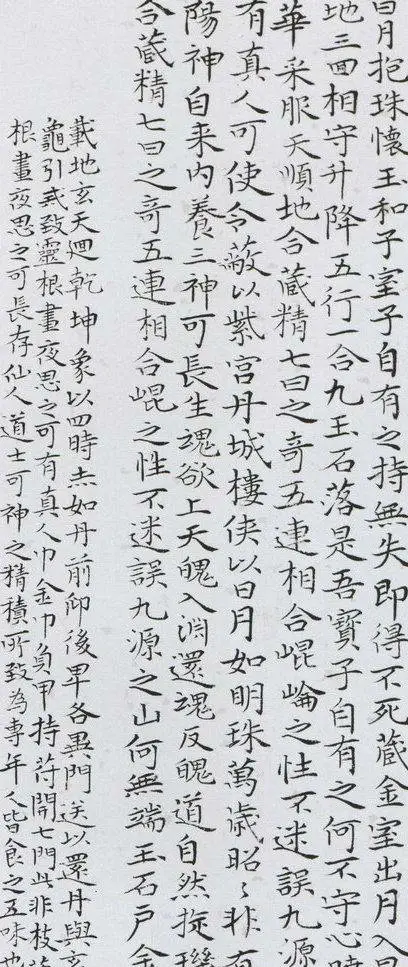 日月抱珠懷玉和子室子自有之持無失即得不死藏金室出月入日
地三回相守升降五行一合九玉石落是吾寶子自有之何不守心
華采服天順地合藏精七日之奇五連相合崐崘之性不迷誤九源
有真人可使令蔽以紫宮丹城樓俠以日月如明珠萬歲昭々非有
陽神自来内養三神可長生魂欲上天魄入淵還魂反魄道自然旋璣
合藏精七日之奇五連相合崐之性不迷誤九源之山何無端玉石戶金
載地玄天迴乾坤象以四時赤如丹前仰後卑各異門送以還丹與玄
龜引氣致靈根晝夜思之可有真人巾金巾負甲持苻開七門此非枝
根晝夜思之可長存仙人道士可神之精積所致為專年人皆食之五味也